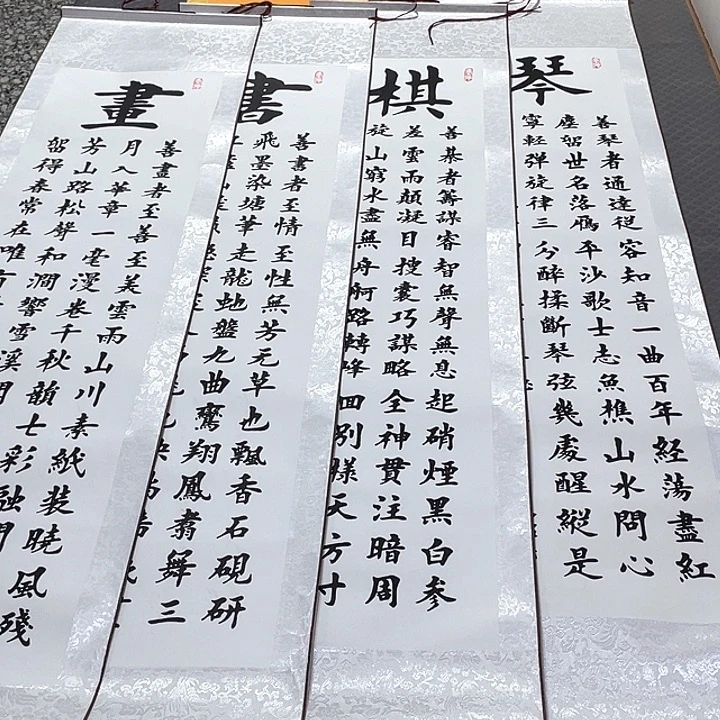 琴
善琴者通達從容知音一曲百年經蕩盡紅
塵留世名落鴈平沙歌士志魚樵山水問心
寧輕彈旋律三分醉揉斷琴弦幾處醒縱是
棋
善棊者籌謀睿智無聲無息起硝煙黑白参
差雲雨顛凝目搜囊巧謀略全神貫注暗周
旋山窮水盡無舟河路轉峰回別樣天方寸
書
善書者至情至性無芳元草也飄香石硯研
飛墨染塘筆走龍虵盤九曲鸞翔鳳翥舞三
畫
善畫者至善至美雲雨山川素紙裝曉風殘
月入華章一毫漫卷千秋韻七彩融
芳山路松聲和澗響雪溪
留得春常在唯